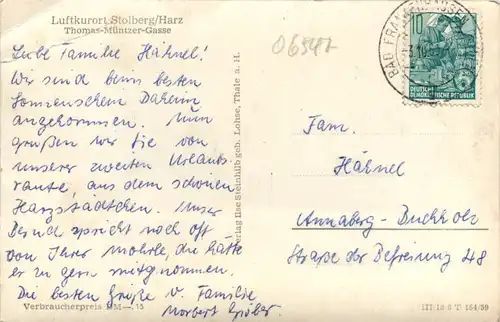 Luftkurort Stolberg/Harz
Thomas-Müntzer-Gasse
06547
Liebe Familie Hähnel!
Wir sind beim besten
Sonnenschein Daheim
angekommen. Nun
grüßen wir Sie von
unserer zweiten Urlaubs
route, aus dem schönen
Harzstädtchen. Unser
Bernd spricht noch oft
von Ihrer Mohrle, die hätte
er zu gern mitgenommen.
Die besten Grüße v. Familie
Norbert Gröber
Verbraucherpreis DM —.15
Verlag Ilse Steinhilb geb. Lohse, Thale a. H.
BAD FRANKENHAUSEN
10
DEUTSCHE
DEMOKRATISCHE REPUBLIK
Fam.
Hähnel
Annaberg-Buchholz
Straße der Befreiung 48
III/18 6 T 164/59